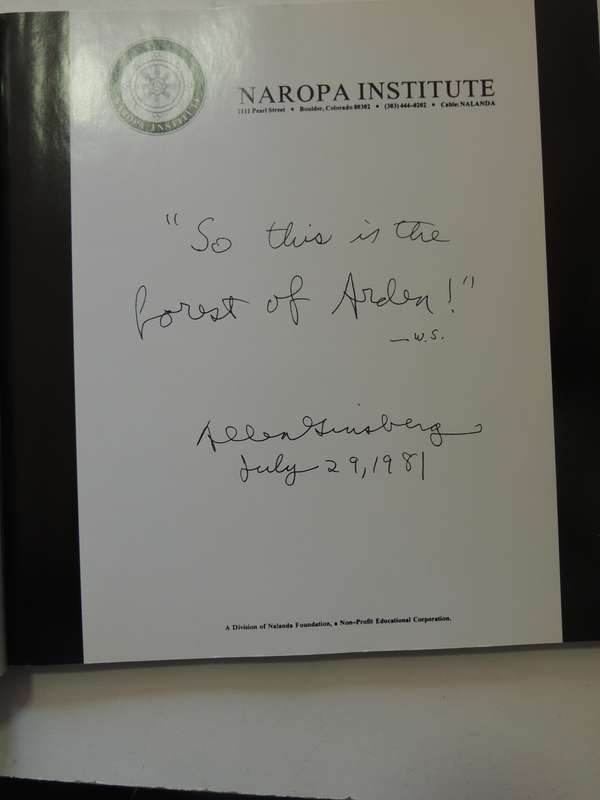 NAROPA INSTITUTE
NAROPA INSTITUTE
1111 Pearl Street • Boulder, Colorado 80302 • (303) 444-0202 • Cable: NALANDA
"So this is the
forest of Arden!"
—W.S.
Allen Ginsberg
July 29, 1981
A Division of Nalanda Foundation, a Non-Profit Educational Corporation.